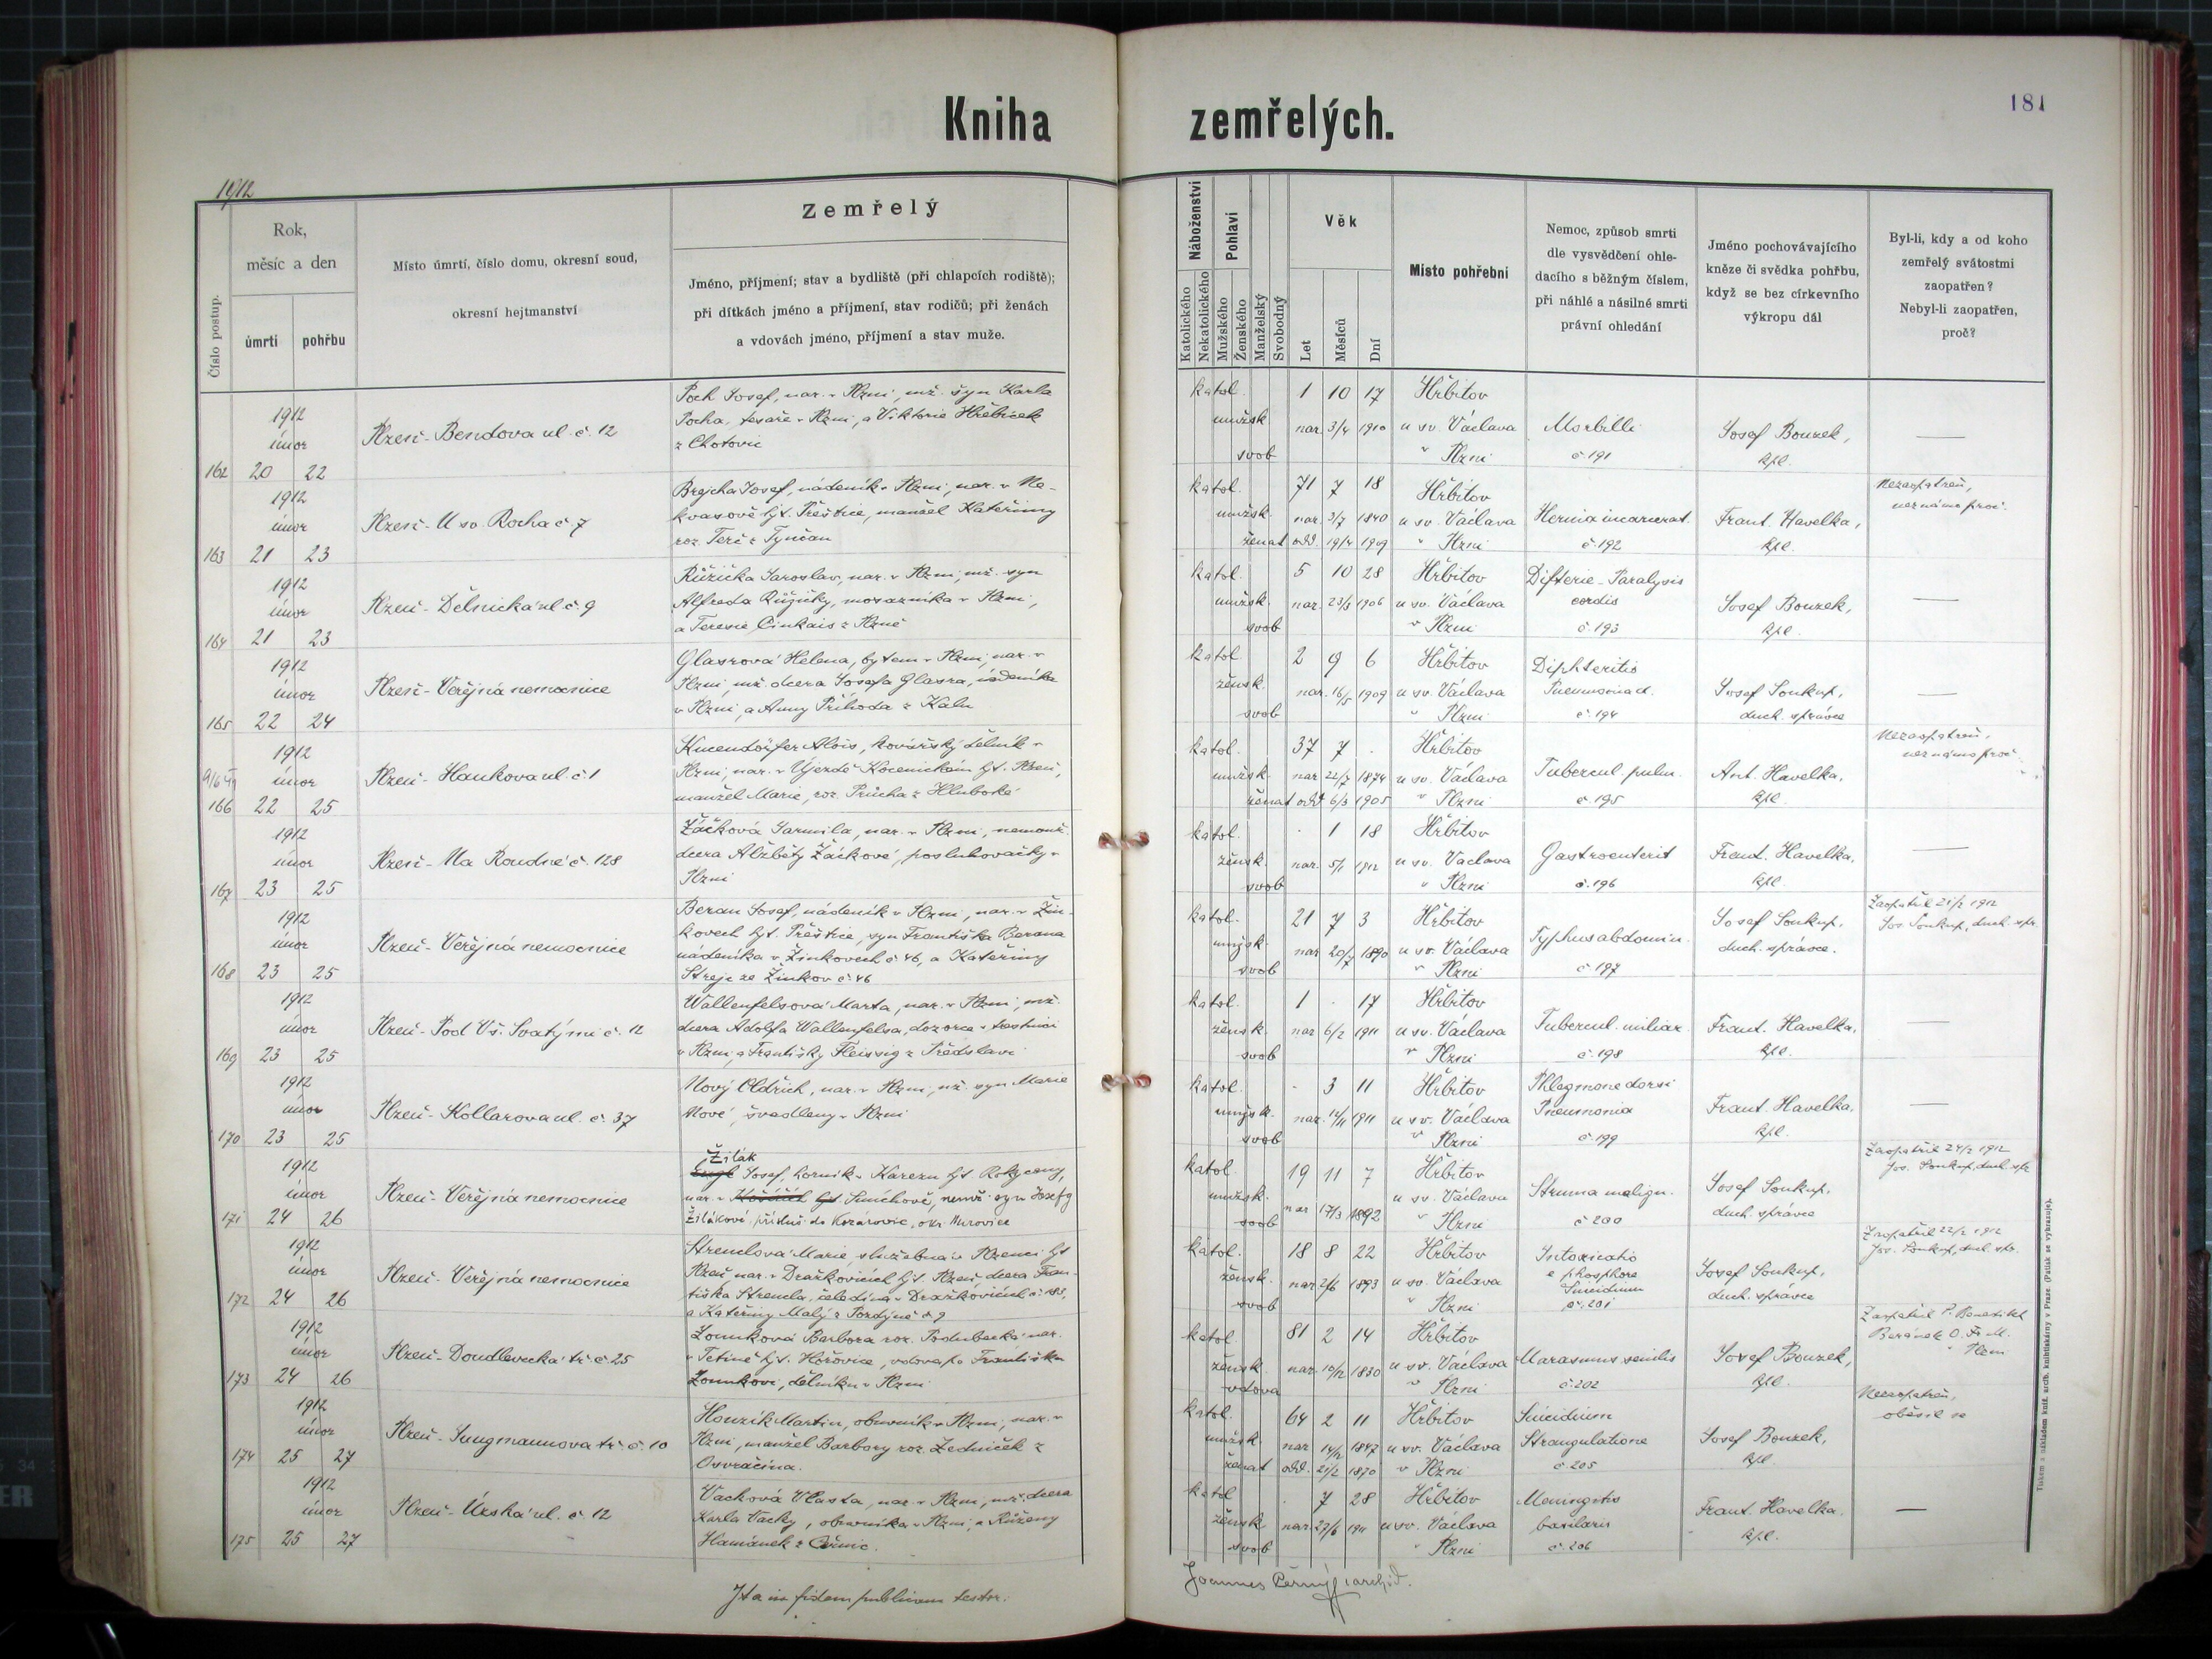 Kniha zemřelých.
181
1912
Číslo postup.
Rok,
měsíc a den
úmrtí
pohřbu
Místo úmrtí, číslo domu, okresní soud,
okresní hejtmanství
Zemřelý
Jméno, příjmení; stav a bydliště (při chlapcích rodiště);
při dítkách jméno a příjmení, stav rodičů; při ženách
a vdovách jméno, příjmení a stav muže.
Náboženství
Katolického
Nekatolického
Pohlaví
Mužského
Ženského
Manželský
Svobodný
Věk
Let
Měsíců
Dní
Místo pohřební
Nemoc, způsob smrti
dle vysvědčení ohle-
dacího s běžným číslem,
při náhlé a násilné smrti
právní ohledání
Jméno pochovávajícího
kněze či svědka pohřbu,
když se bez církevního
výkropu dál
Byl-li, kdy a od koho
zemřelý svátostmi
zaopatřen?
Nebyl-li zaopatřen,
proč?
162
1912
únor
20 22
Plzeň - Bendova ul. č. 12
Poch Josef, nar. v Plzni, mž. syn Karla
Pocha, tesaře v Plzni, a Viktorie Hřebíček
z Chotovic
katol.
mužsk
svob
1 10 17
nar. 3/4 1910
Hřbitov
u sv. Václava
v Plzni
Morbilli
č. 191
Josef Bouzek,
kpl.
163
1912
únor
21 23
Plzeň - U sv. Rocha č 7
Brejcha Josef, nádeník v Plzni, nar. v Ne-
kvasově hjt. Přeštice, manžel Kateřiny
roz. Terč z Týnčan
katol.
mužsk.
ženat
71 7 18
nar. 3/7 1840
odd. 19/4 1909
Hřbitov
u sv. Václava
v Plzni
Hernia incarcerat.
č. 192
Frant. Havelka,
kpl.
Nezaopatřen,
neznámo proč.
164
1912
únor
21 23
Plzeň - Dělnická ul. č. 9
Růžička Jaroslav, nar. v Plzni, mž. syn
Alfreda Růžičky, mosazníka v Plzni,
a Teresie Cinkais z Plzně
katol.
mužsk.
svob
5 10 28
nar. 23/3 1906
Hřbitov
u sv. Václava
v Plzni
Difterie - Paralysis
cordis
č. 193
Josef Bouzek,
kpl.
165
1912
únor
22 24
Plzeň - Veřejná nemocnice
Glasrová Helena, bytem v Plzni, nar. v
Plzni, mž. dcera Josefa Glasra, nádeníka
v Plzni, a Anny Příhoda z Kalu
katol.
žensk.
svob
2 9 6
nar. 16/5 1909
Hřbitov
u sv. Václava
v Plzni
Diphteritis
Pneumonia d.
č. 194
Josef Soukup,
duch. správce
166
1912
únor
22 25
Plzeň - Hankova ul. č. 1
Kucendörfer Alois, kovářský dělník v
Plzni, nar. v Újezdě Kocenickém hjt. Plzeň,
manžel Marie, roz. Průcha z Hluboké
katol.
mužsk.
ženat
37 7 .
nar 22/7 1874
odd 6/3 1905
Hřbitov
u sv. Václava
v Plzni
Tubercul. pulm.
č. 195
Ant. Havelka,
kpl.
Nezaopatřen,
neznámo proč.
167
1912
únor
23 25
Plzeň - Na Roudné č. 128
Žáčková Jarmila, nar. v Plzni, nemanž.
dcera Alžběty Žáčkové, posluhovačky v
Plzni
katol.
žensk.
svob
. 1 18
nar. 5/1 1912
Hřbitov
u sv. Václava
v Plzni
Gastroenterit
č. 196
Frant. Havelka,
kpl.
168
1912
únor
23 25
Plzeň - Veřejná nemocnice
Beran Josef, nádeník v Plzni, nar. v Žin-
kovech hjt. Přeštice, syn Františka Berana
nádeníka v Žinkovech č 46, a Kateřiny
Streje ze Žinkov č. 46
katol.
mužsk.
svob
21 7 3
nar 20/7 1890
Hřbitov
u sv. Václava
v Plzni
Typhus abdomin.
č 197
Josef Soukup,
duch. správce.
Zaopatřil 21/2 1912
Jos Soukup, duch. spr.
169
1912
únor
23 25
Plzeň - Pod Vš. Svatými č. 12
Wallenfelsová Marta, nar. v Plzni, mž.
dcera Adolfa Wallenfelsa, dozorce v trestnici
v Plzni, a Františky Fleissig z Předslavi
katol.
žensk.
svob
1 . 17
nar 6/2 1911
Hřbitov
u sv. Václava
v Plzni
Tubercul. miliar.
č. 198
Frant. Havelka,
kpl.
170
1912
únor
23 25
Plzeň - Kollarova ul. č. 37
Nový Oldřich, nar. v Plzni, nž. syn Marie
Nové, švadleny v Plzni
katol.
mužsk.
svob
. 3 11
nar. 14/11 1911
Hřbitov
u sv. Václava
v Plzni
Phlegmone dorsi
Pneumonia
č. 199
Frant. Havelka,
kpl.
171
1912
únor
24 26
Plzeň - Veřejná nemocnice
Žilák
Josef, horník v Karezu hjt. Rokycany,
nar. v Smíchově, nemž. syn Josefy
Žilákové, přísluš. do Kozárovic, okr. Mirovice
katol.
mužsk.
svob
19 11 7
nar 17/3 1892
Hřbitov
u sv. Václava
v Plzni
Struma malign.
č 200
Josef Soukup,
duch. správce
Zaopatřil 24/2 1912
Jos. Soukup, duch. spr.
172
1912
únor
24 26
Plzeň - Veřejná nemocnice
Strenclová Marie, služebná v Plzenci hjt
Plzeň nar. v Dražkovicích hjt. Plzeň, dcera Fran-
tiška Strencla, čeledína v Dražkovicích
a Kateřiny Malý z Pordýně č. 9
katol.
žensk.
svob
18 8 22
nar. 2/6 1893
Hřbitov
u sv. Václava
v Plzni
Intoxicatio
e phosphore
Suicidium
č. 201
Josef Soukup,
duch. správce
Zaopatřil 22/2 1912
Jos. Soukup, duch. spr.
173
1912
únor
24 26
Plzeň - Doudlevecká tř. č. 25
Zounková Barbora roz. Podubecká nar.
v Tetíně hjt. Hořovice, vdova po Františku
Zounkovi, dělníku v Plzni
katol
žensk.
vdova
81 2 14
nar. 10/12 1830
Hřbitov
u sv. Václava
v Plzni
Marasmus senilis
č. 202
Josef Bouzek,
kpl.
Zaopatřil P. Benedikt
Beránek O. Fr. M.
v Plzni
174
1912
únor
25 27
Plzeň - Jungmannova tř. č. 10
Houzík Martin, obuvník v Plzni, nar. v
Plzni, manžel Barbory roz. Zedníček z
Osvračína.
katol.
mužsk.
ženat
64 2 11
nar 14/12 1847
odd. 21/2 1870
Hřbitov
u sv. Václava
v Plzni
Suicidium
Strangulatione
č. 205
Josef Bouzek,
kpl.
Nezaopatřen,
oběsil se
175
1912
únor
25 27
Plzeň - Úzská ul. č. 12
Vacková Vlasta, nar. v Plzni, mž. dcera
Karla Vacky, obuvníka v Plzni, a Růženy
Hamánek z
katol
žensk
svob
. 7 28
nar. 27/6 1911
Hřbitov
u sv. Václava
v Plzni
Meningitis
basilaris
č. 206
Frant. Havelka.
kpl.
Ita in fidem publicam testor:
Joannes Černý archid.